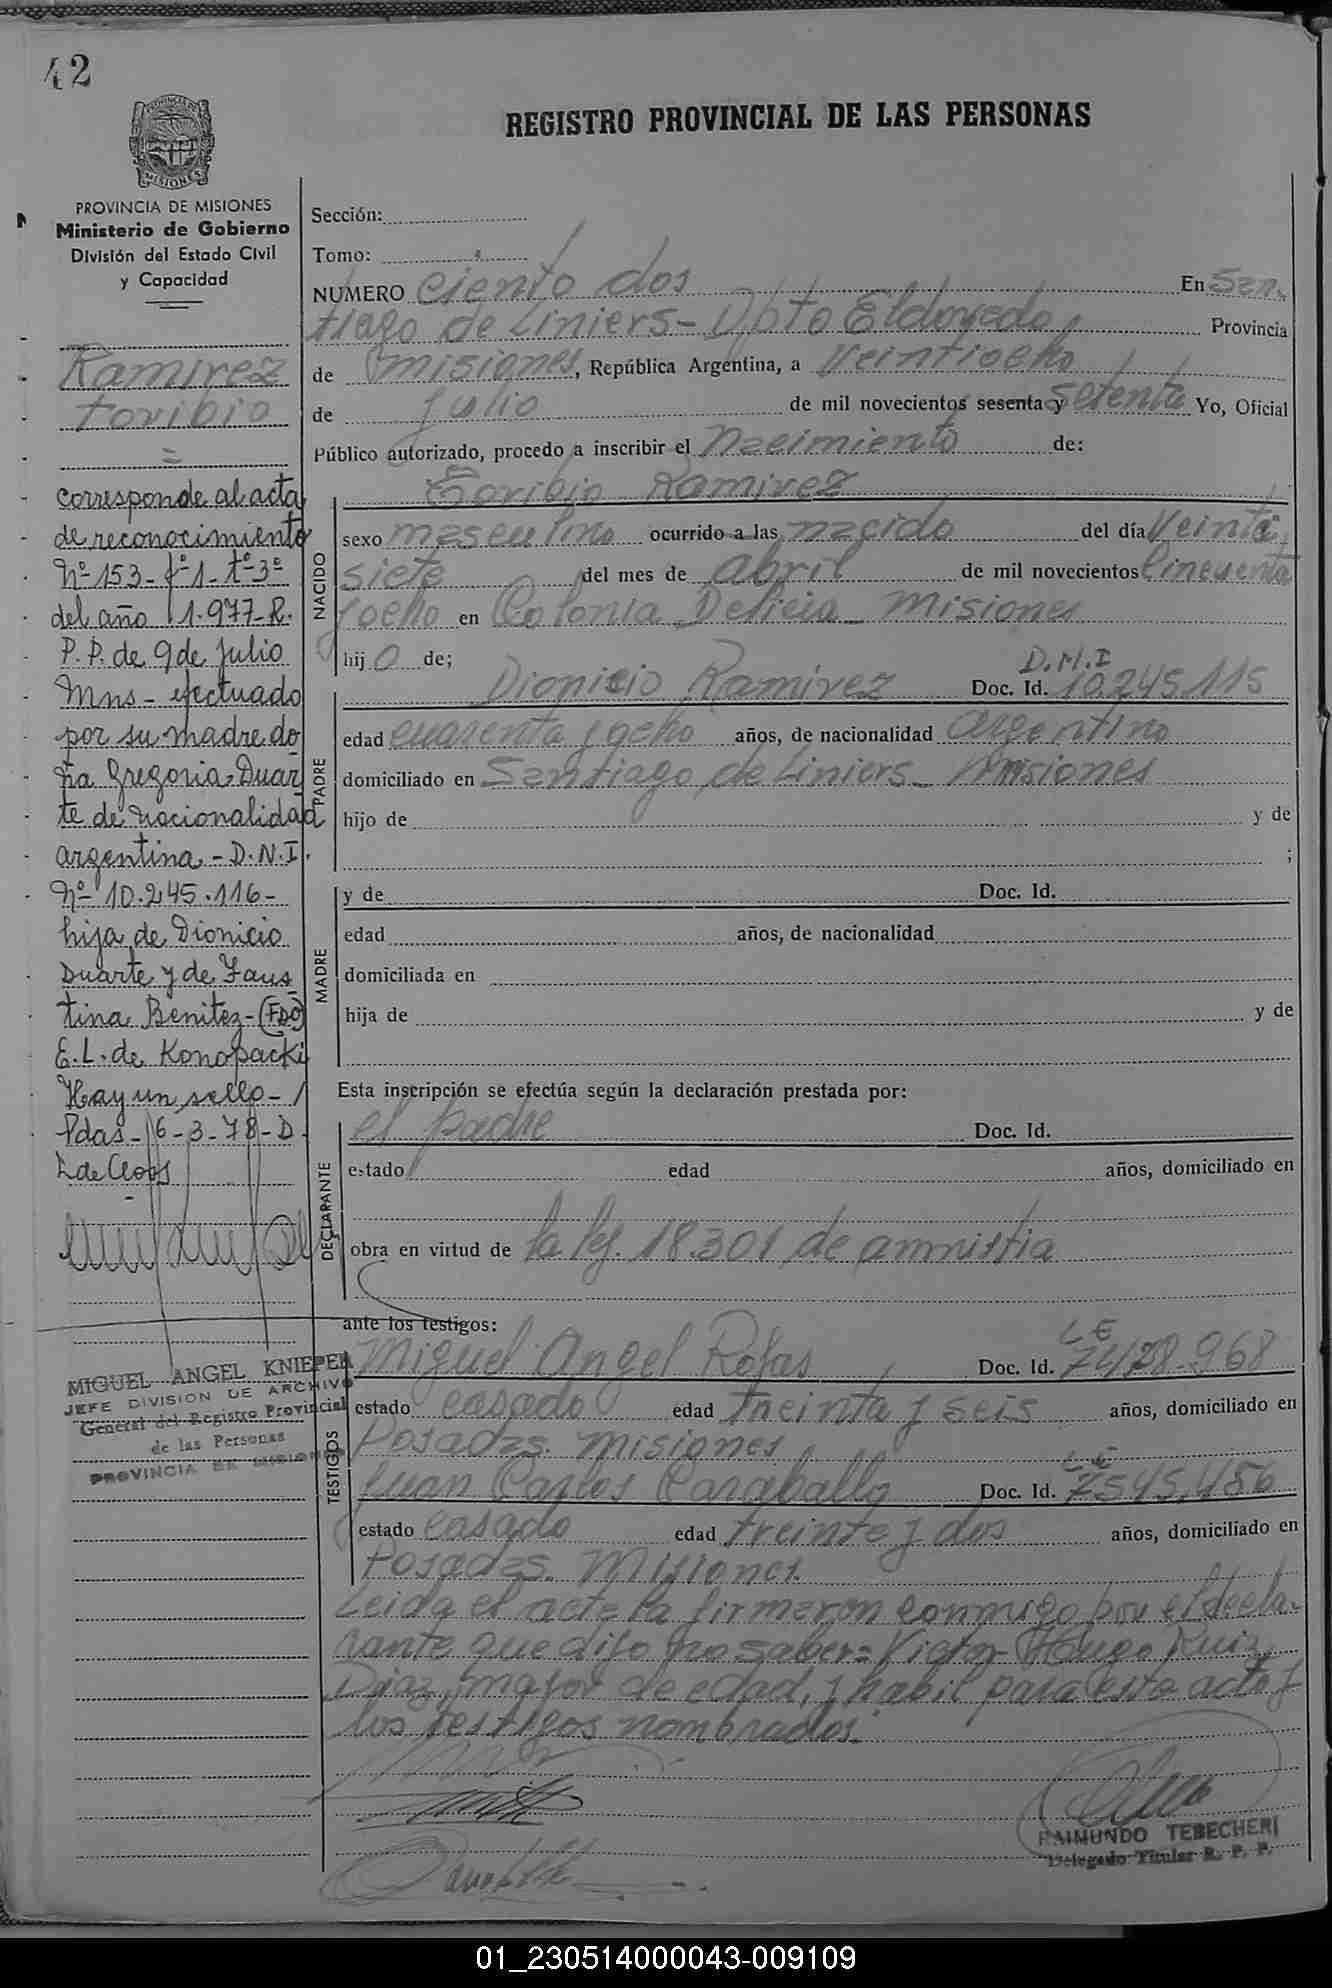 42
REGISTRO PROVINCIAL DE LAS PERSONAS
MISIONES
PROVINCIA DE MISIONES
Ministerio de Gobierno
División del Estado Civil
y Capacidad
Ramirez
toribio
=
corresponde al acta
de reconocimiento
Nº 153 - fº 1 - tº 3º
del año 1.977 - R.
P. P. de 9 de Julio
Mns - efectuado
por su madre do
ña Gregoria Duar
te de nacionalidad
argentina - D.N.I.
Nº 10.245.116 -
hija de Dionicio
Duarte y de Faus
tina Benitez - (FDO)
E. L. de Konopacki
Hay un sello - /
Pdas - 6 - 3 - 78 - D.
MIGUEL ANGEL KNIEPER
JEFE DIVISION DE ARCHIVO
General del Registro Provincial
de las Personas
PROVINCIA DE MISIONES
Sección:
Tomo:
NUMERO Ciento dos En San
tiago de Liniers - Dpto Eldorado Provincia
de Misiones, República Argentina, a Veintiocho
de Julio de mil novecientos sesenta y setenta Yo, Oficial
Público autorizado, procedo a inscribir el Nacimiento de:
Toribio Ramirez
NACIDO
sexo masculino ocurrido a las nacido del día Veinti
siete del mes de abril de mil novecientos Cincuenta
y ocho en Colonia Delicia - Misiones
hij o de;
PADRE
Dionicio Ramirez Doc. Id. D.N.I 10.245.115
edad cuarenta y ocho años, de nacionalidad argentino
domiciliado en Santiago de Liniers - Misiones
hijo de y de
;
MADRE
y de Doc. Id.
edad años, de nacionalidad
domiciliada en
hija de y de
Esta inscripción se efectúa según la declaración prestada por:
DECLARANTE
el padre Doc. Id.
estado edad años, domiciliado en
obra en virtud de la ley. 18.301 de amnistia
ante los testigos:
TESTIGOS
Miguel Angel Rojas Doc. Id. LE 7.478.968
estado casado edad treinta y seis años, domiciliado en
Posadas. Misiones
Juan Carlos Caraballo Doc. Id. LE 7.545.456
estado casado edad treinta y dos años, domiciliado en
Posadas. Misiones.
Leida el acta la firmaron conmigo por el decla-
rante que dijo no saber = Victor Hugo Ruiz
Diaz, mayor de edad, y habil para este acto y
los testigos nombrados.
RAIMUNDO TEBECHERI
Delegado Titular R. P. P.
01_230514000043-009109